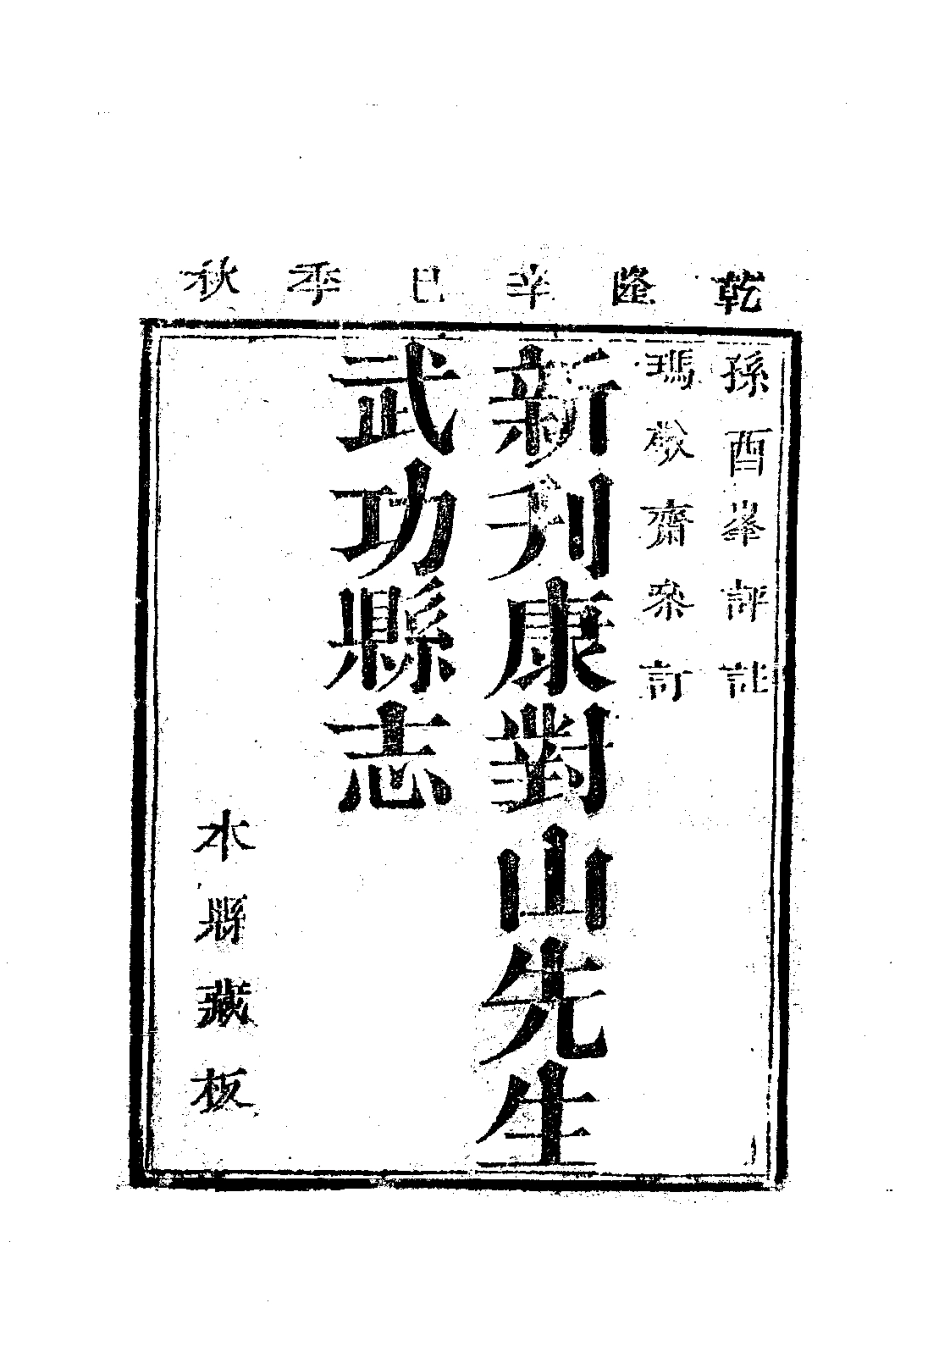 乾隆辛巳季秋
孫酉峯評註
瑪敬齋叅訂
新刋康對山先生
武功縣志
本縣藏板